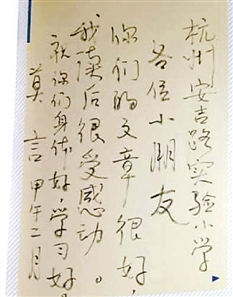 杭州安吉路实验小学
各位小朋友
你们的文章很好，
我读后很受感动。
祝你们身体好，学习好。
莫言 甲午二月